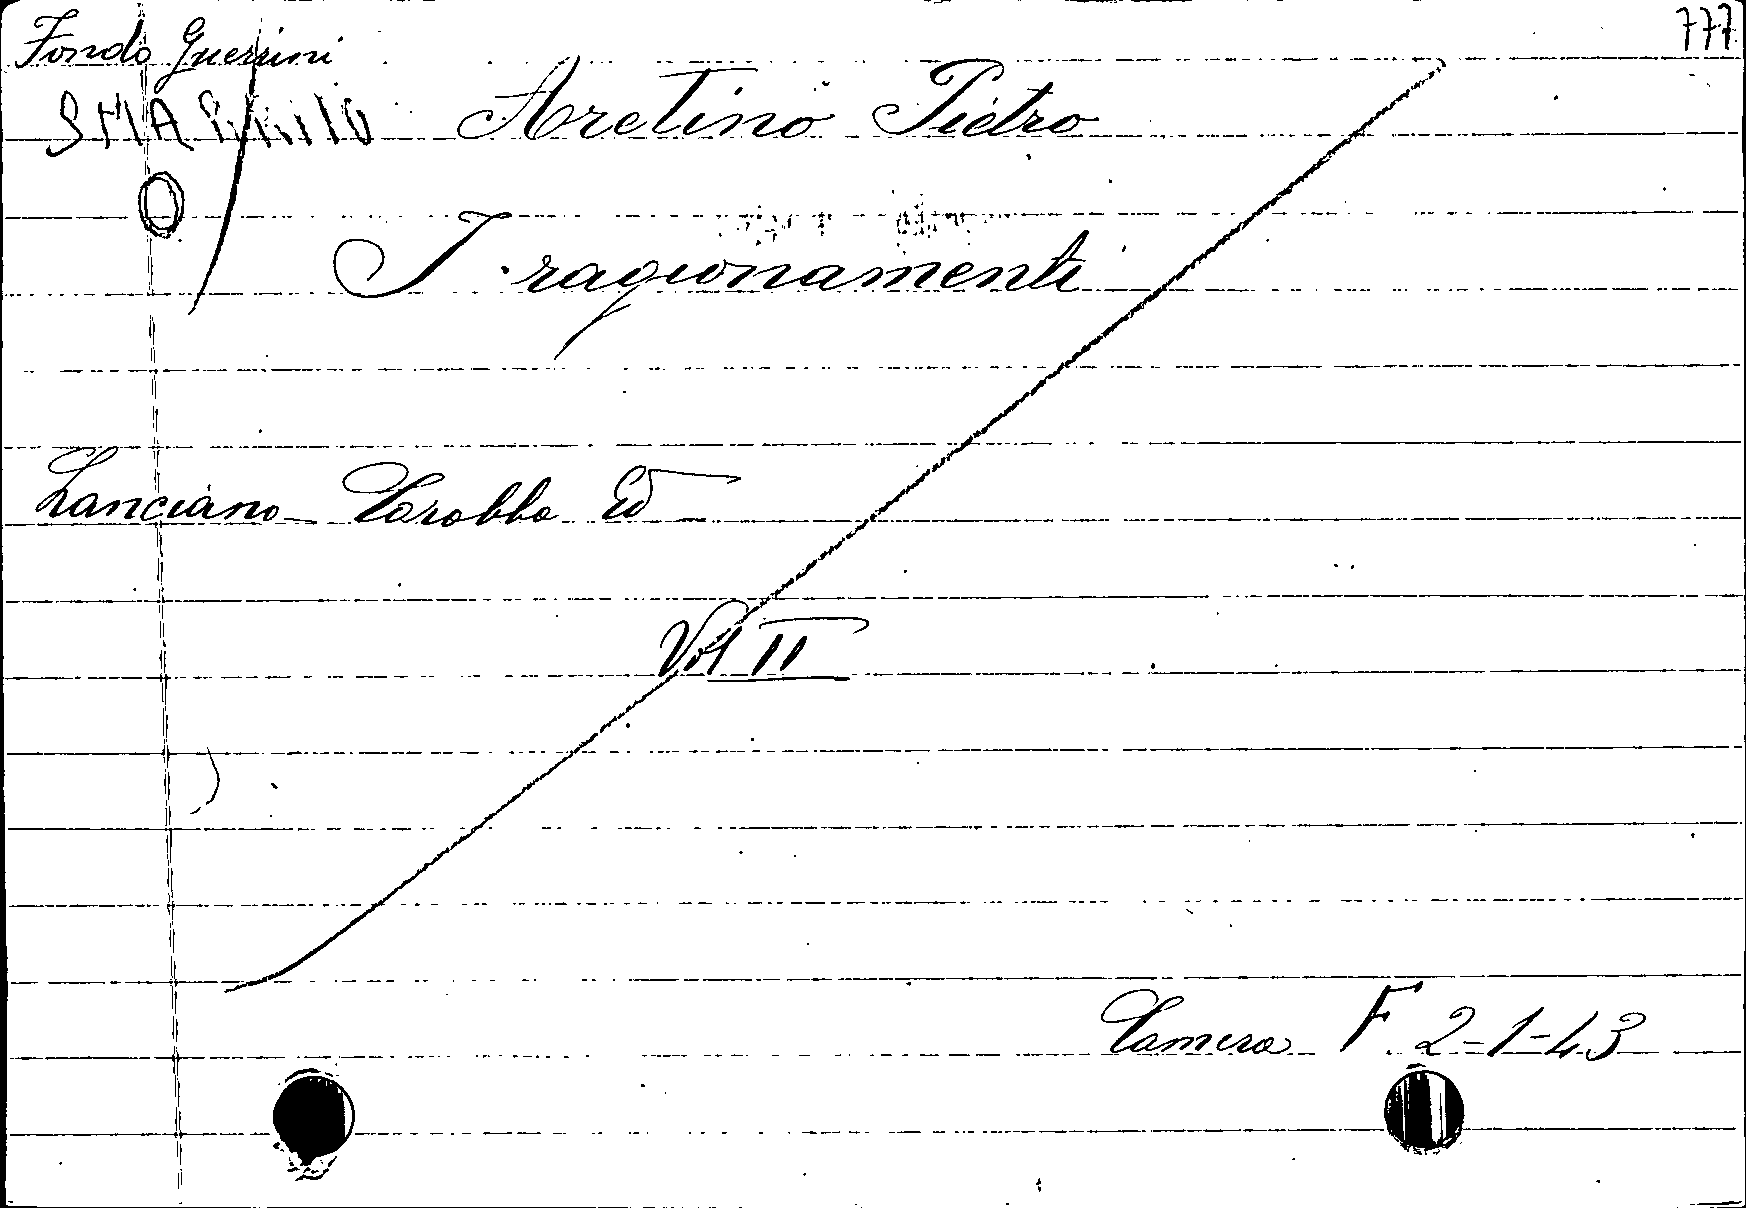 Fondo Guerrini 777
SMARRITO Aretino Pietro
I ragionamenti
Lanciano Carabba Ed
Vol II
Camera F 2-1-43